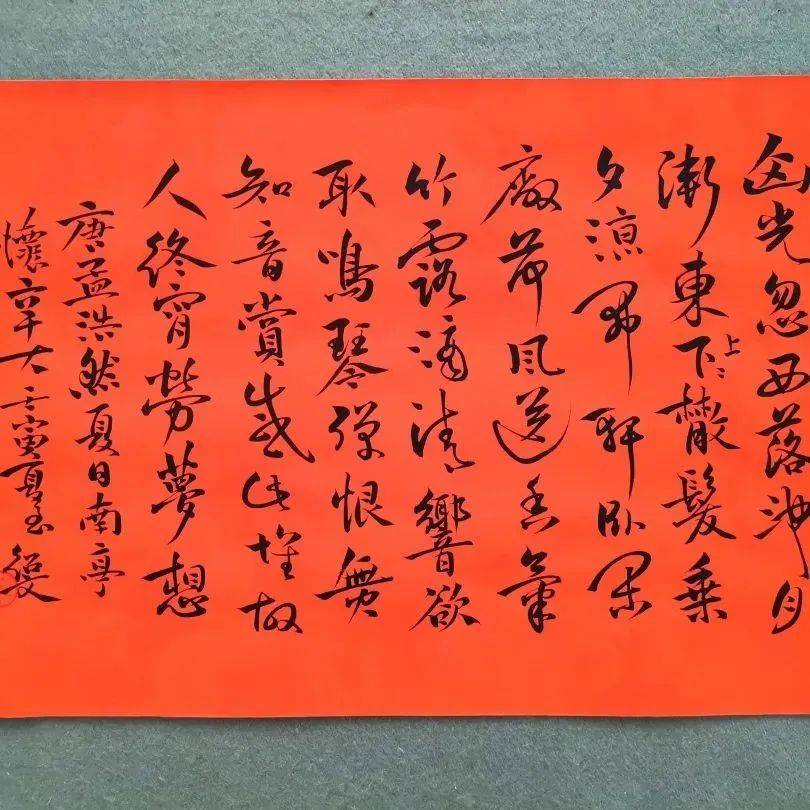 光忽西落池月
漸東下上散髮乘
夕涼開軒臥閑
廠荷風送香氣
竹露滴清響欲
取鳴琴彈恨無
知音賞感此懷故
人終宵勞夢想
唐孟浩然夏日南亭
懷辛大壬寅夏至